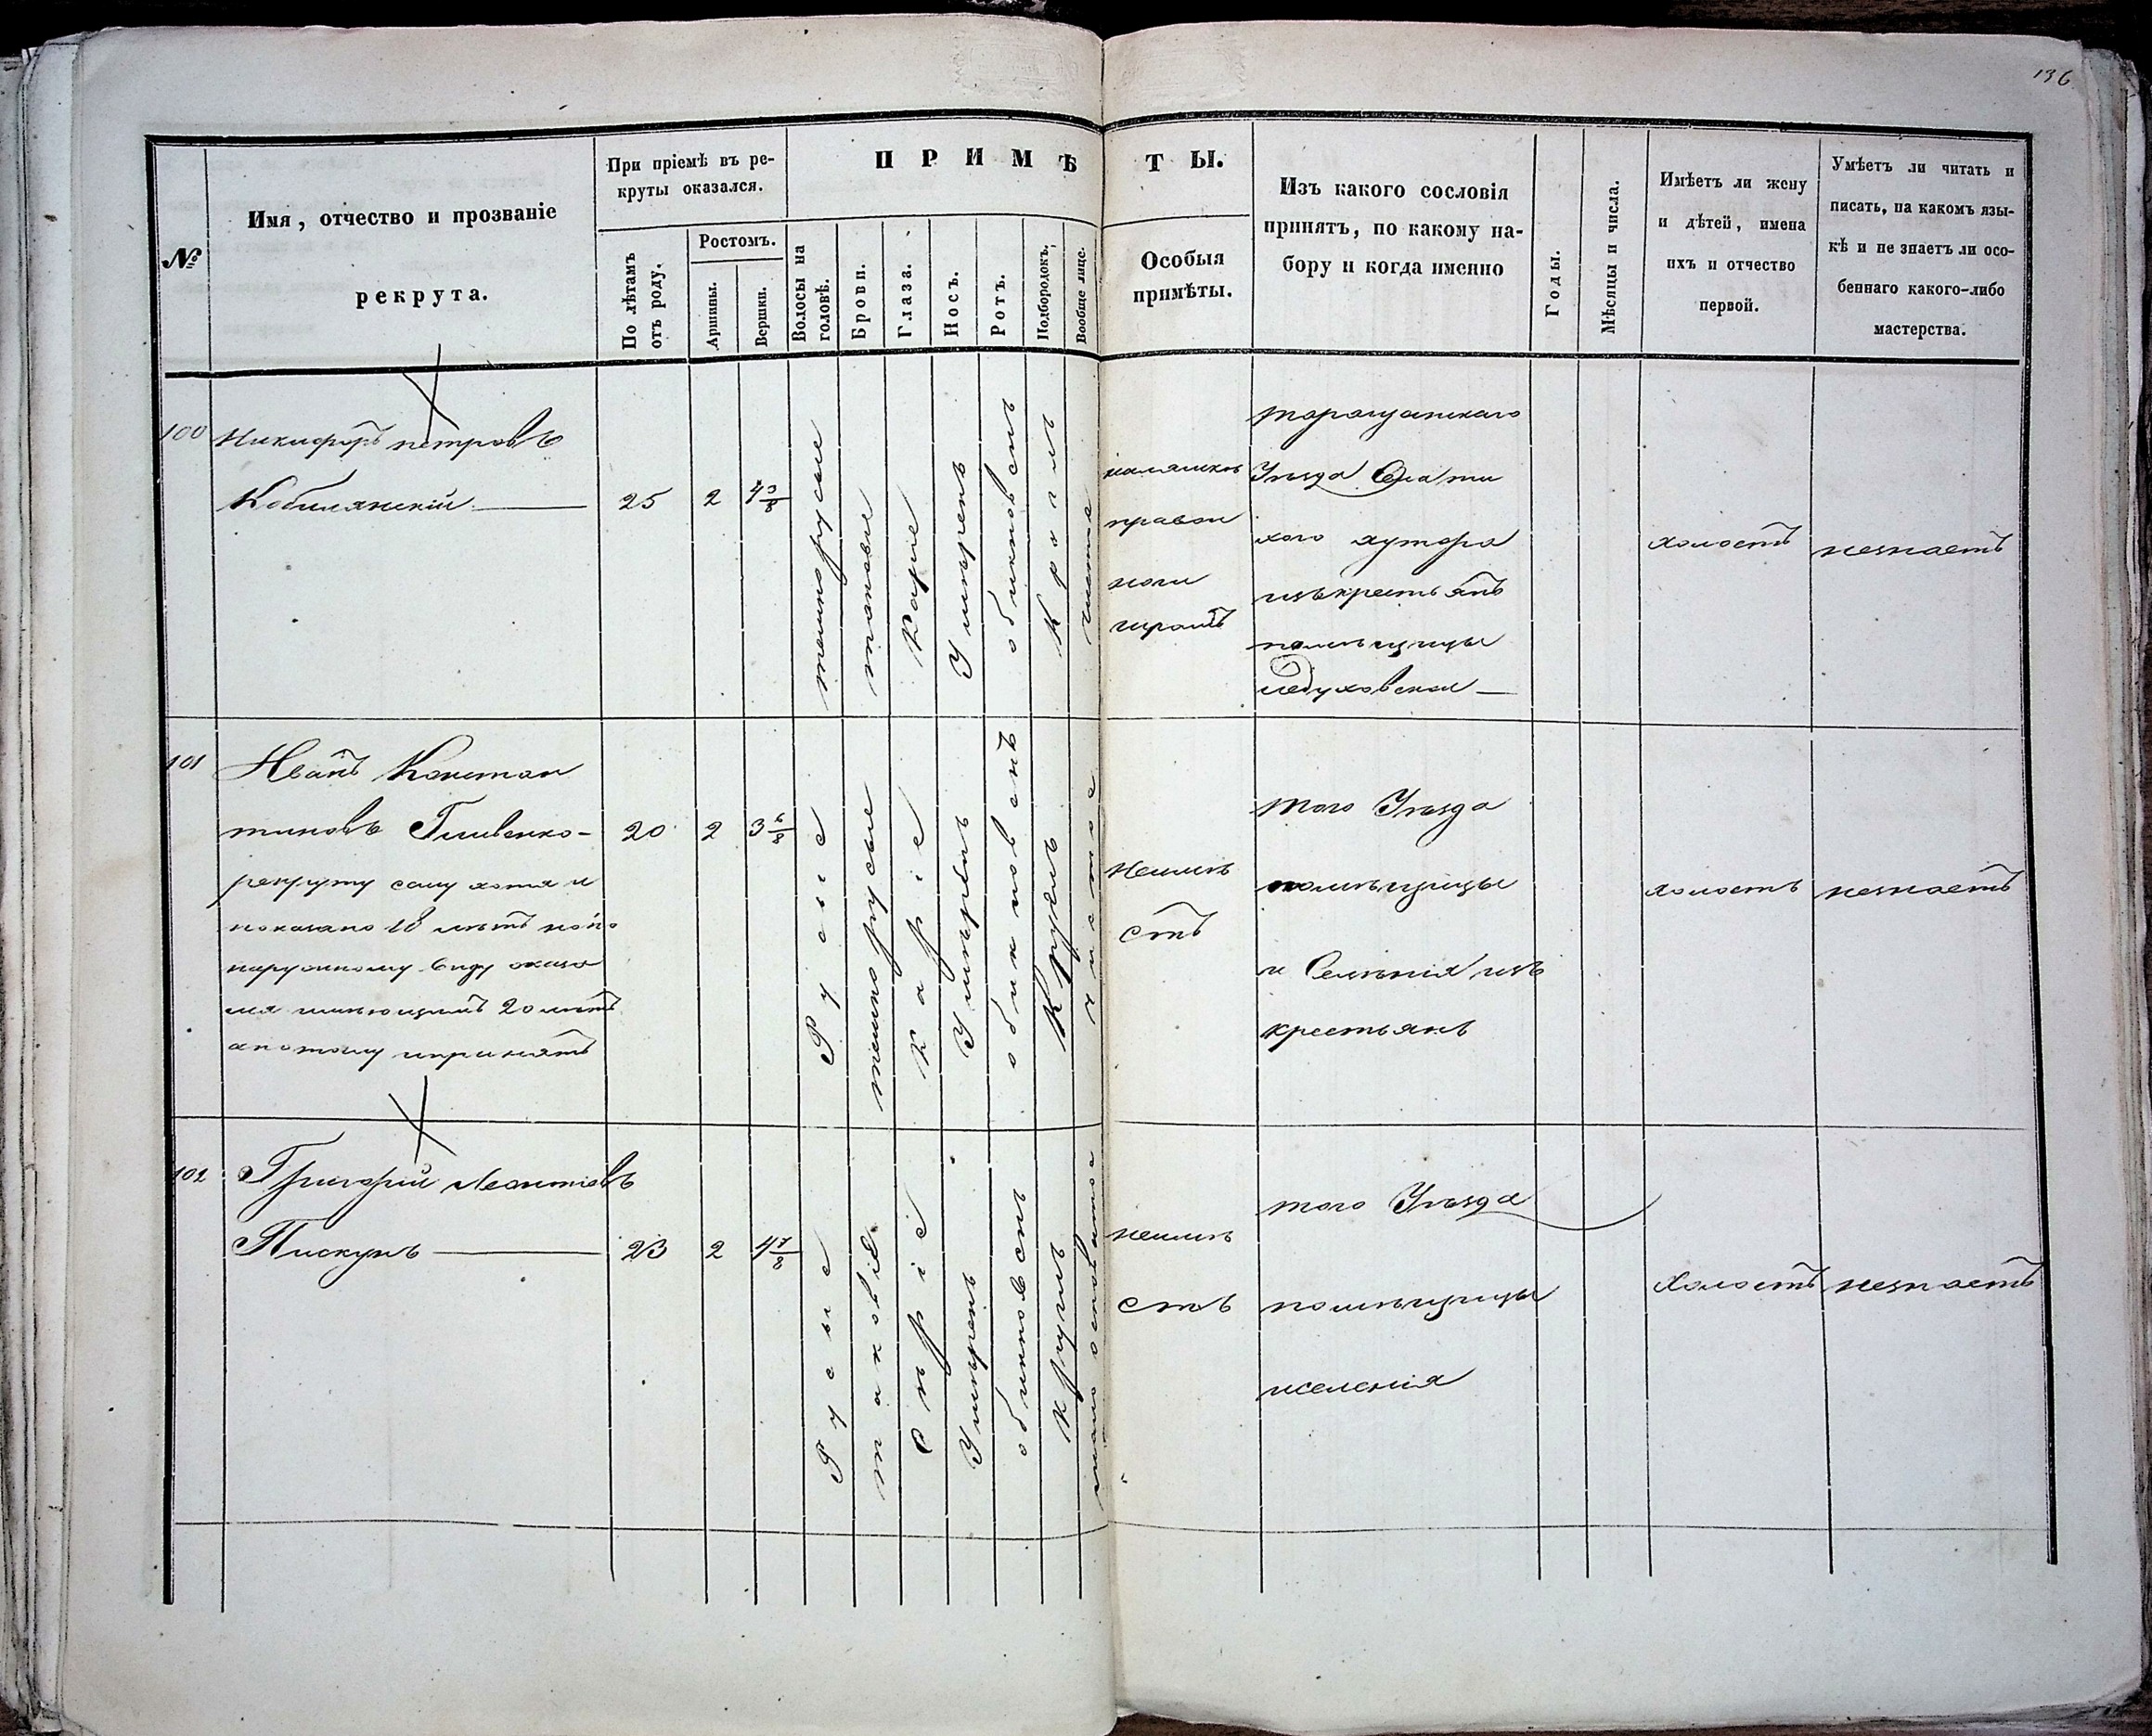 136
№
Имя, отчество и прозваніе
рекрута.
При пріемѣ въ ре-
круты оказался.
По лѣтамъ
отъ роду.
Ростомъ.
Аршины.
Вершки.
ПРИМѢТЫ.
Волосы на
головѣ.
Брови.
Глаза.
Носъ.
Ротъ.
Подбородокъ.
Вообще лице.
Особыя
примѣты.
Изъ какого сословія
принятъ, по какому на-
бору и когда именно
Годы.
Мѣсяцы и числа.
Имѣетъ ли жену
и дѣтей, имена
ихъ и отчество
первой.
Умѣетъ ли читать и
писать, на какомъ язы-
кѣ и не знаетъ ли осо-
беннаго какого-либо
мастерства.
100
Никифоръ петровъ
Кобилянскій
25
2
4 3/8
темнорусые
таковые
Карие
Умѣренъ
обикновенъ
Круглъ
чистое
правои
ноги
шрамъ
Таращанскаго
Уѣзда
хутора
изъ крестьянъ
помѣщицы
холостъ
незнаетъ
101
Иванъ Констан
тиновъ Гливенко-
рекруту сему хотя и
показано 18 лѣтъ но по
наружному виду оказа
лся имѣющимъ 20 лѣтъ
а потому и принятъ
20
2
3 6/8
Русые
темнорусые
Каріе
Умѣренъ
обикновенъ
Круглъ
чистое
Неимѣ
етъ
того Уѣзда
помѣщицы
и Селенія изъ
крестьянъ
холостъ
незнаетъ
102
Григорій Леонтіевъ
Пискунъ
23
2
4 7/8
Русые
таковіе
Сѣріе
Умѣренъ
обикновенъ
Круглъ
неимѣ
етъ
того Уѣзда
помѣщицы
иселенія
Холостъ
незнаетъ